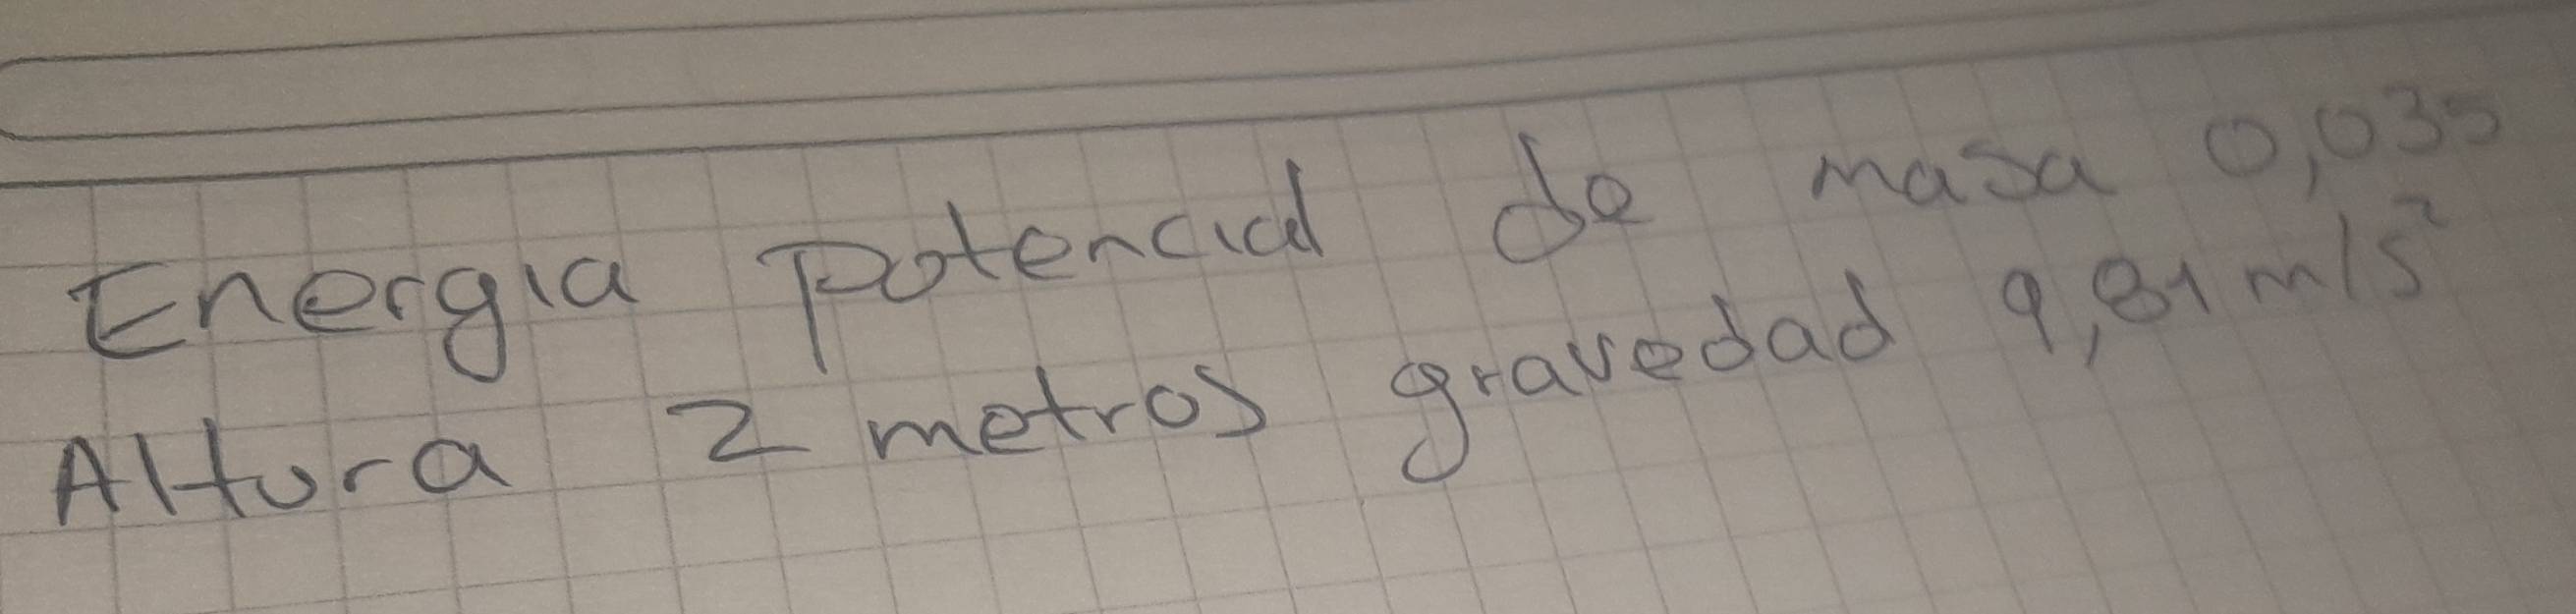 Energia potencial de masa 0,035
Altura 2 metros gravedad 9,81 m/s²